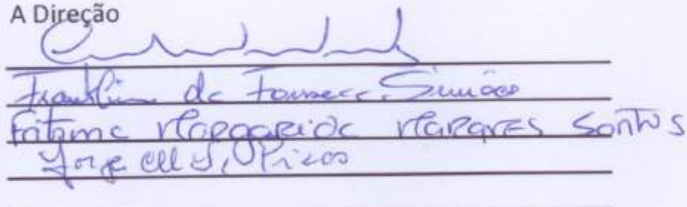 A Direção
Franklim da Fonseca Simões
Fátima Margarida Marques Santos
Jorge